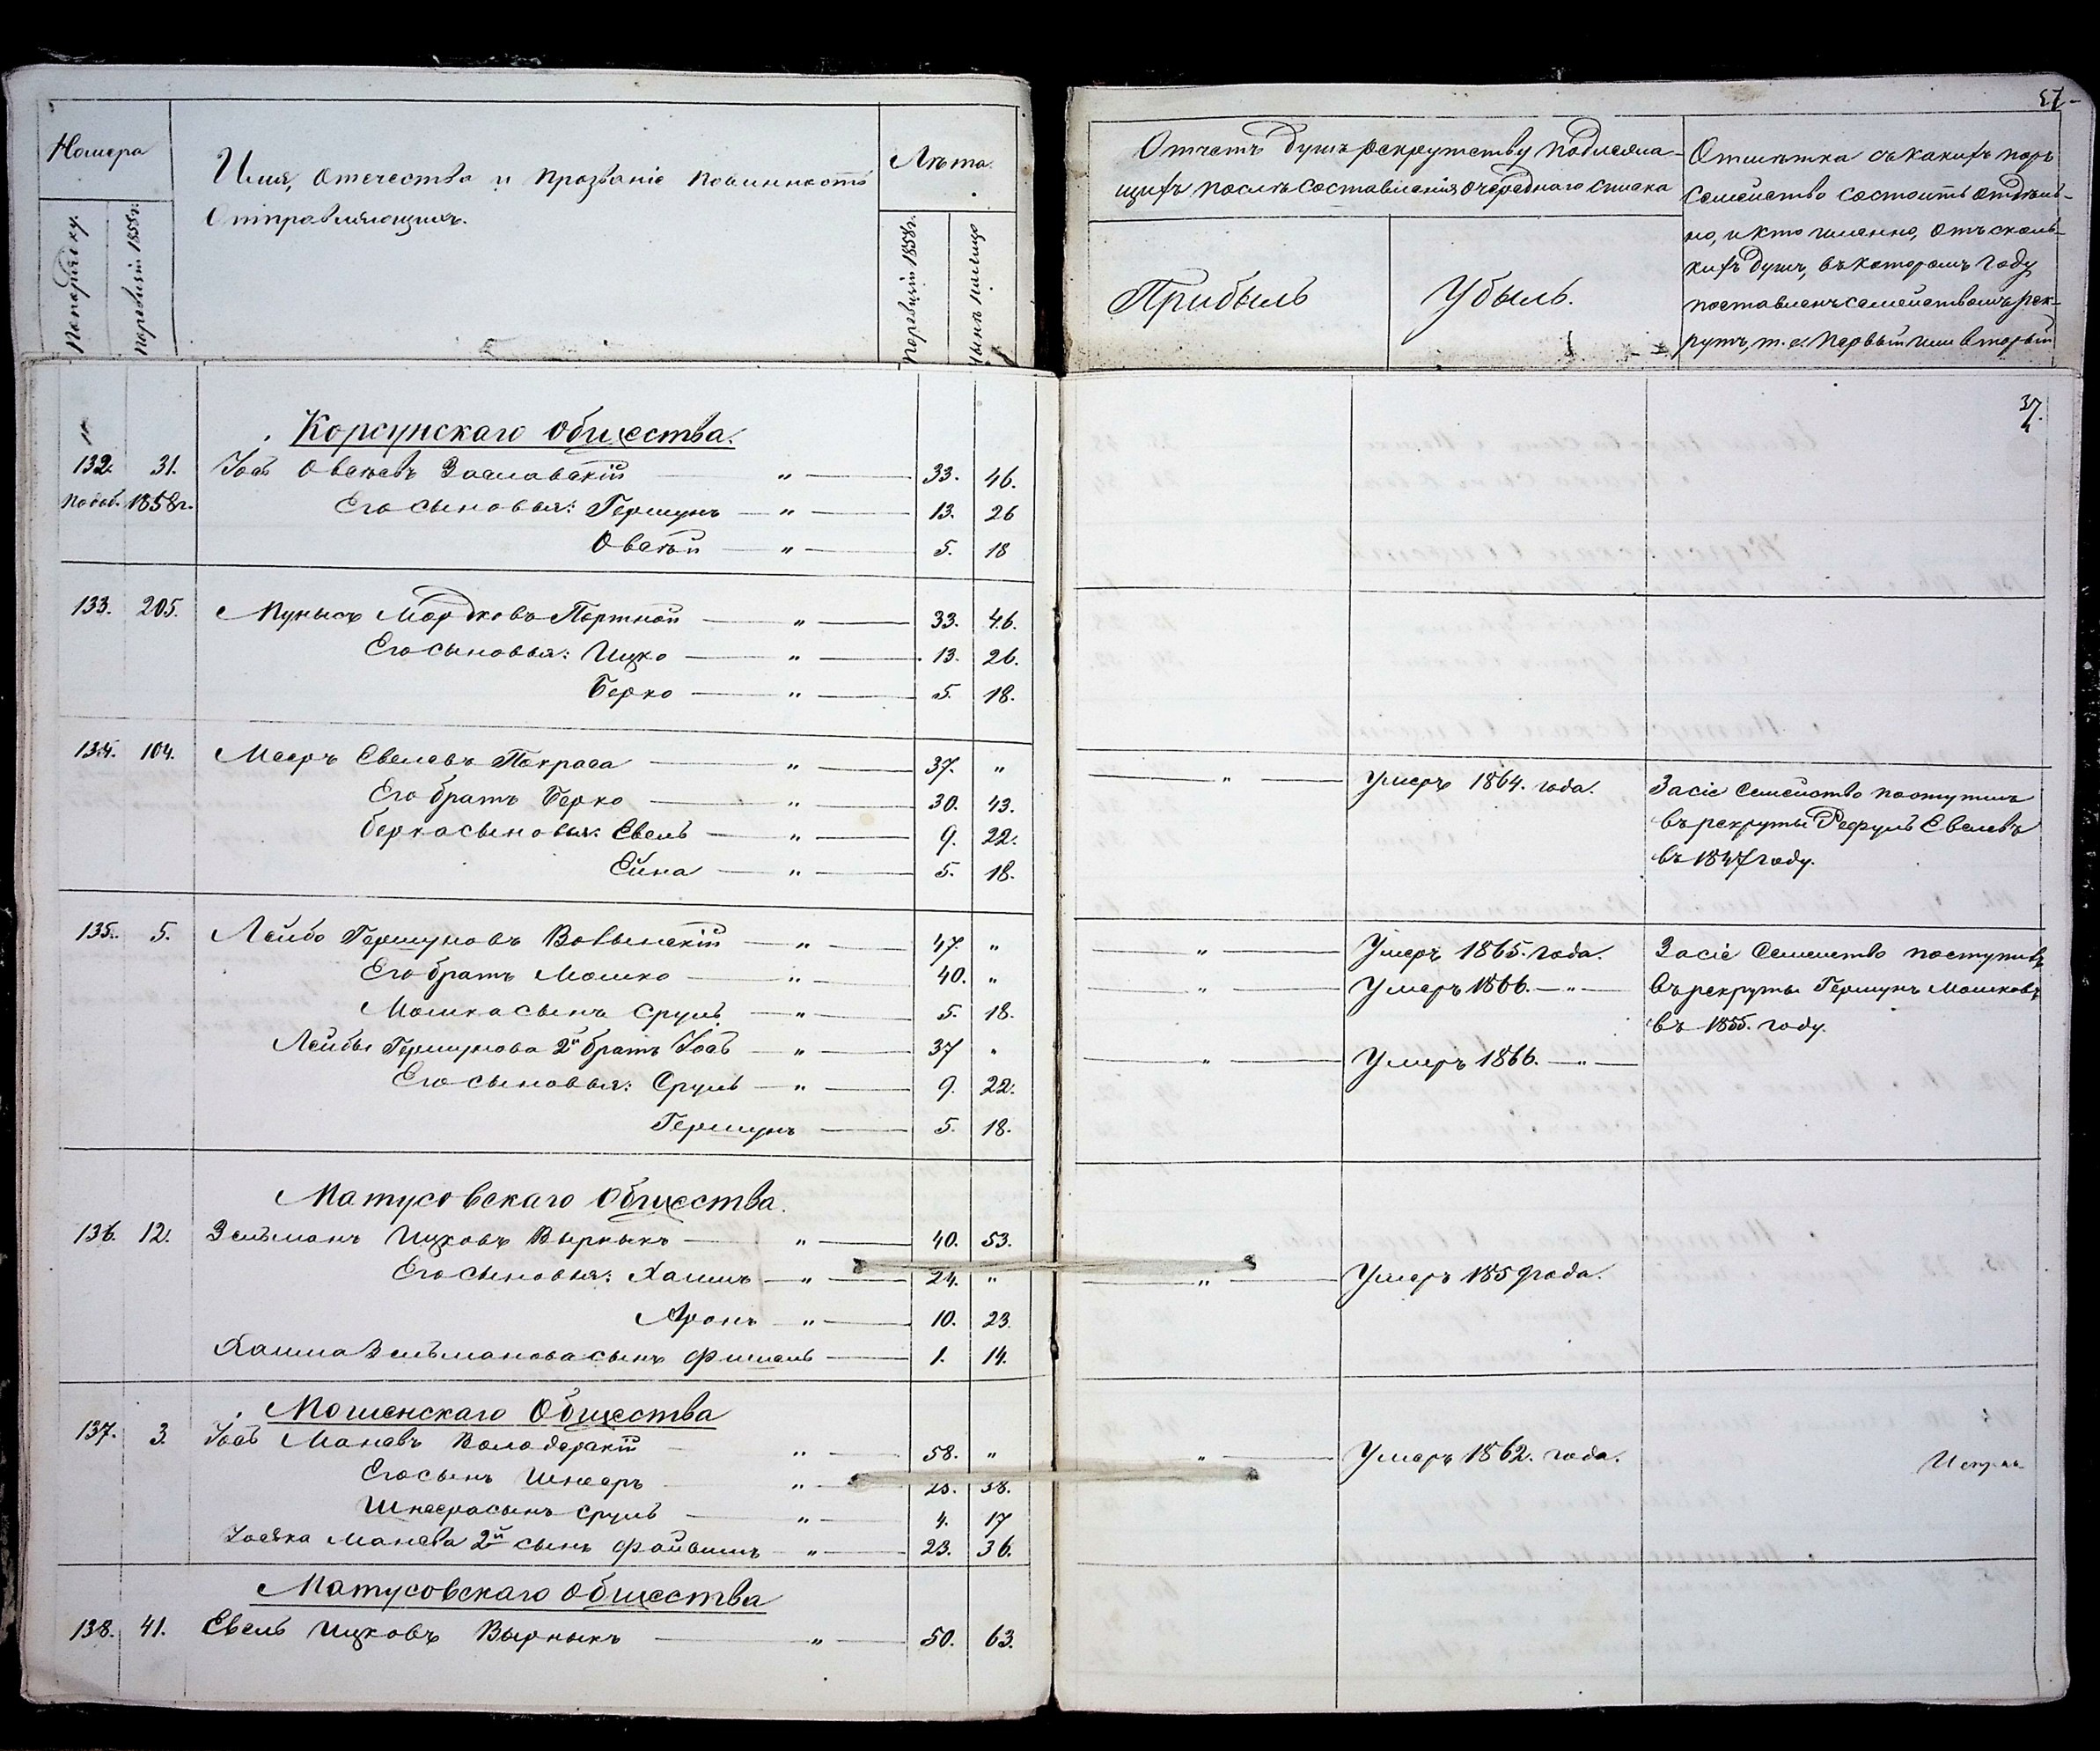 Номера
Имя, отечество и прозваніе повинность
Отправляющихъ.
Лѣта.
По порядку.
По ревизіи 1858 г.
По ревизіи 1858 г.
Нынѣ имѣющ
57
Отчетъ душъ рекрутству подлежа-
щихъ послѣ составленія очереднаго списка
Прибыль
Убыль.
Отмѣтка съ какихъ поръ
Семейство состоитъ отдѣль-
но, и кто именно, отъ сколь-
кихъ душъ, въ которомъ году
поставленъ семействомъ рек-
рутъ, т. е. первый или вторый
37.
Корсунскаго Общества.
132. 31. Іось Овсѣевъ Заславскій — " — 33. 46.
По доб. 1858 г. Его сыновья: Гершунъ — " — 13. 26
Овсѣй — " — 5. 18
133. 205. Мунысъ Мордковъ Портной — " — 33. 46.
Его сыновья: Ицко — " — 13. 26.
Берко — " — 5. 18.
134. 104. Мееръ Евелевъ Покраса — " — 37. " — " — Умеръ 1864. года. За сіе Семейство поступилъ
Его братъ Берко — " — 30. 43. въ рекруты Рефулъ Евелевъ
Берка сыновья: Евель — " — 9. 22. въ 1847 году.
Ейна — " — 5. 18.
135. 5. Лейбо Гершуновъ Волынскій — " — 47. " — " — Умеръ 1865. года. За сіе Семейство поступилъ
Его братъ Мошко — " — 40. " — " — Умеръ 1866. — " — въ рекруты Гершунъ Мошковъ
Мошка сынъ Сруль — " — 5. 18. въ 1855. году.
Лейбы Гершунова 2й братъ Іось — " — 37 " — " — Умеръ 1866. — " —
Его сыновья: Сруль — " — 9. 22.
Гершунъ — 5. 18.
Матусовскаго Общества.
136. 12. Зельманъ Ицковъ Вырныкъ — " — 40. 53.
Его сыновья: Хаимъ — " — 24. " — " — Умеръ 1859 года.
Аронъ — " — 10. 23
Хаима Зельманова сынъ Фишель — 1. 14.
Мошенскаго Общества
137. 3. Іось Маневъ Володарскій " — 58. " " — Умеръ 1862. года.
Его сынъ Шнееръ " — 25. 38.
Шнеера сынъ Сруль — " — 4. 17
Іоська Манева 2й сынъ Файвишъ — " — 23. 36.
Матусовскаго Общества
138. 41. Евель Ицковъ Вырныкъ — " — 50. 63.